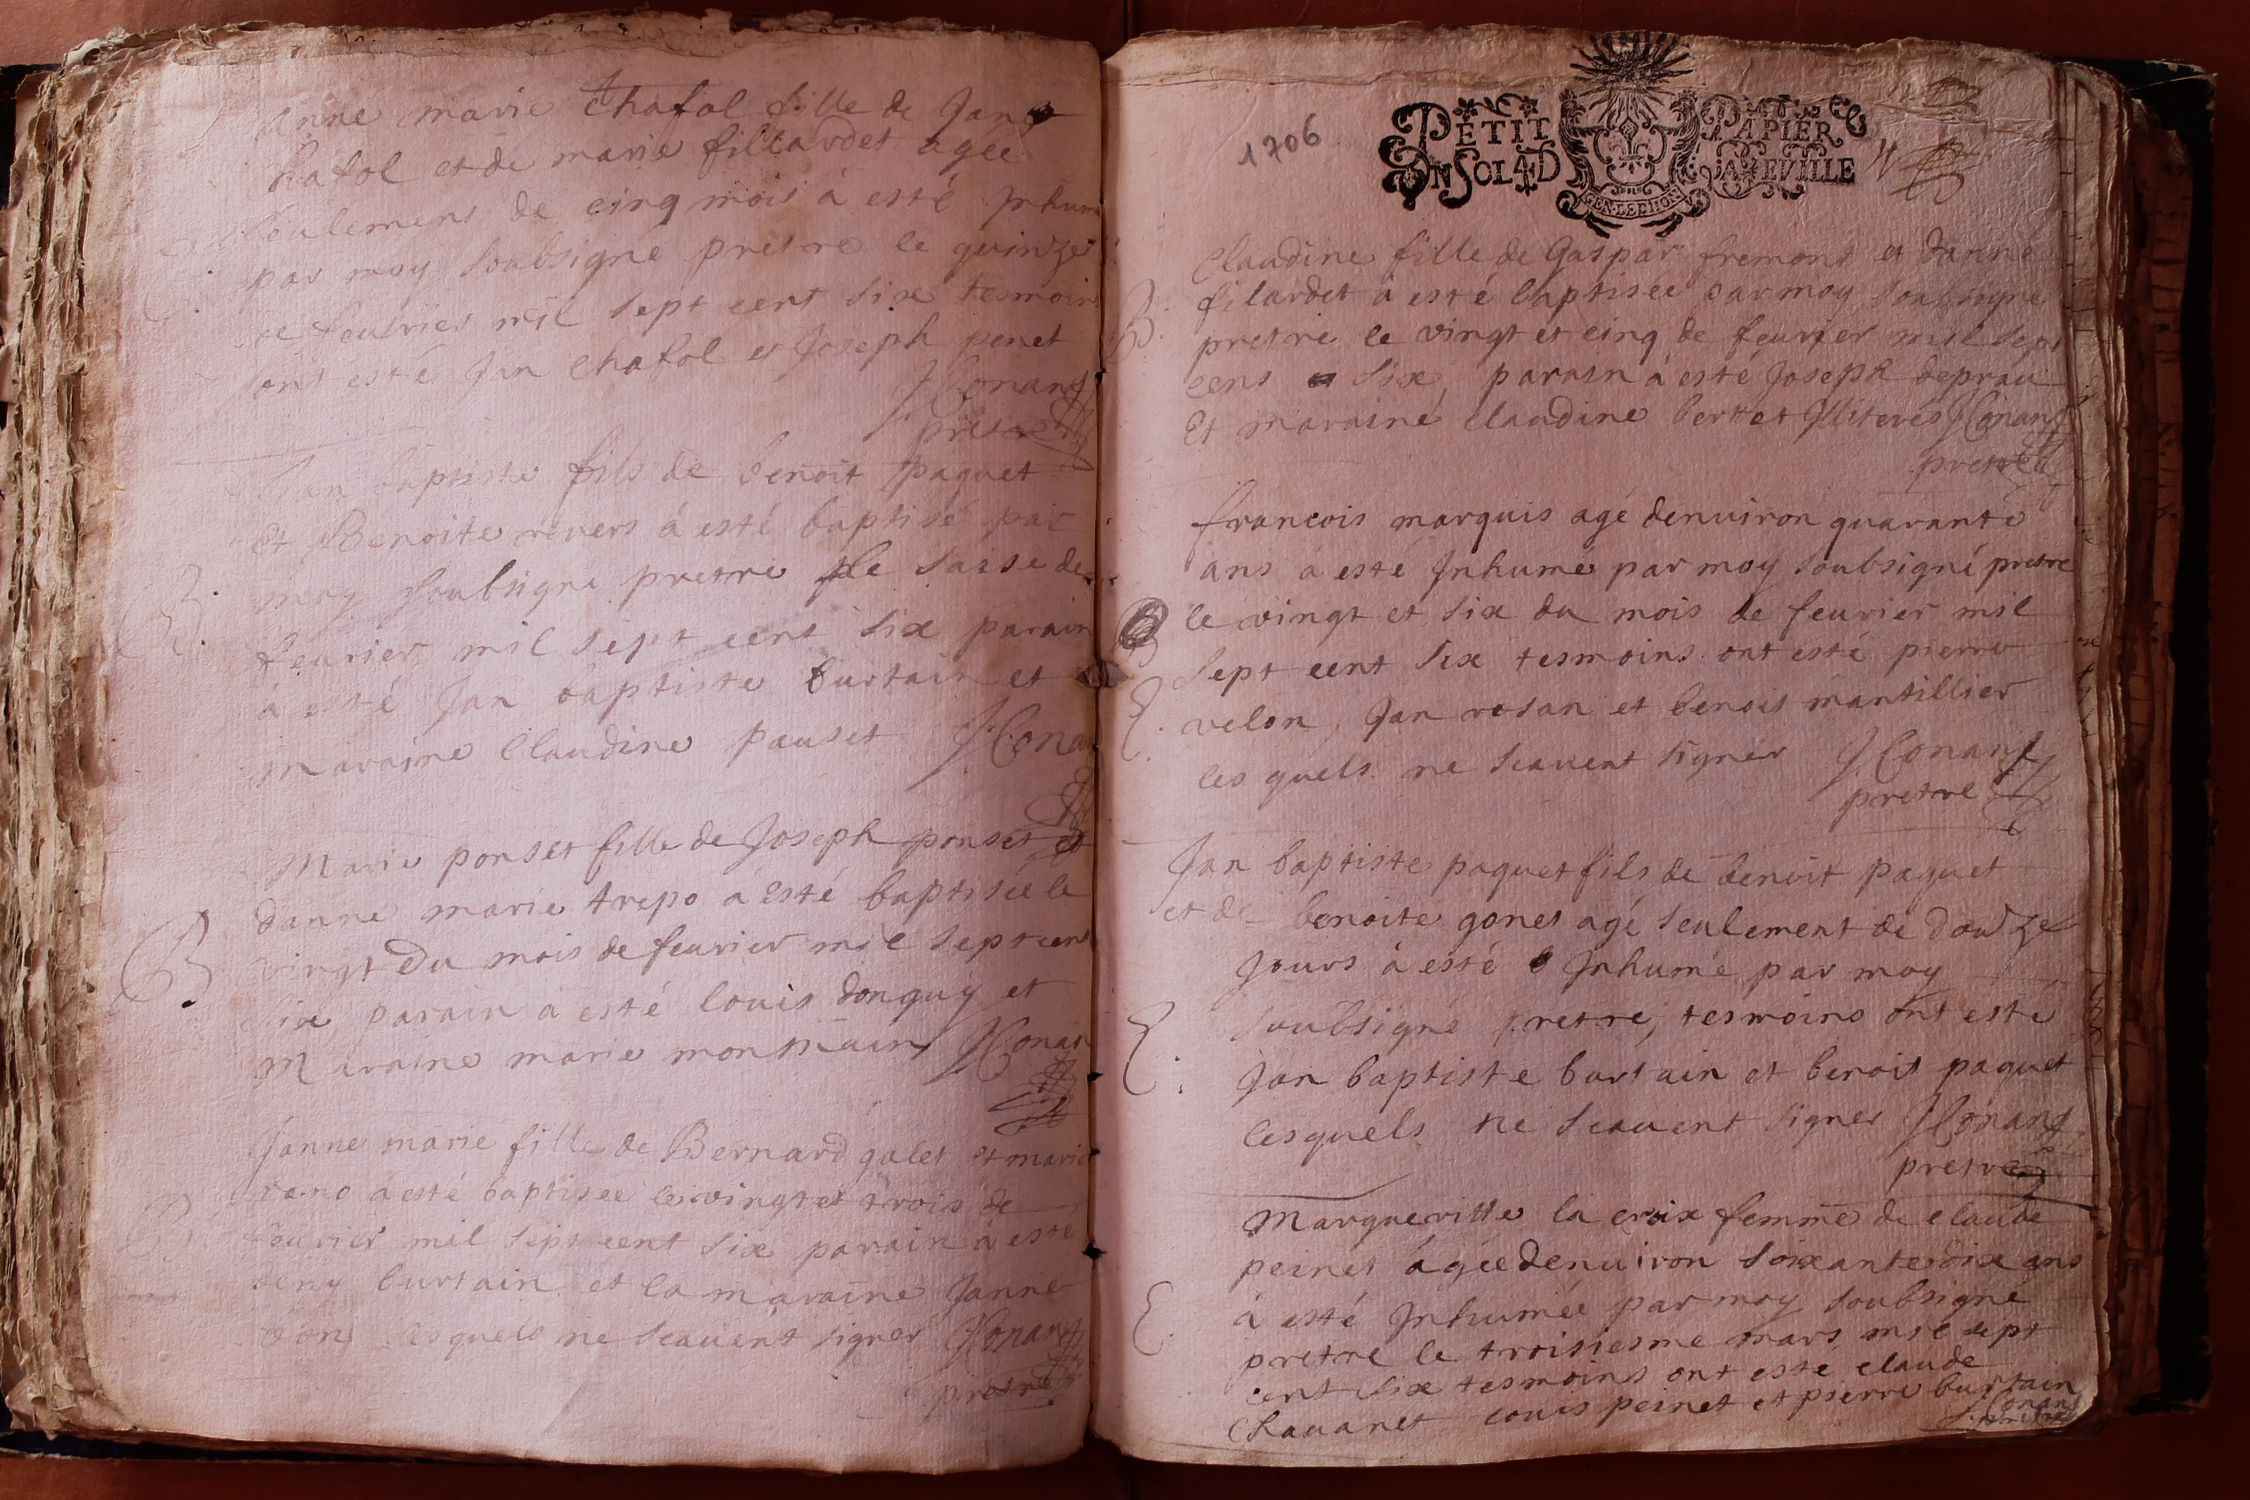 Anne marie Chafol fille de Jan
Chafol et de marie fillardet agée
seulement de cinq mois à esté Inhum
par moy soubsigné pretre le quinze
de feuvrier mil sept cent six tesmoins
ont esté Jan Chafol et Joseph penet
JConant
pretre
Jan baptiste fils de benoit paquet
Et Benoite revers à esté baptisé par
moy soubsigné pretre le saise de
feurier mil sept cent six parain
à esté Jan baptiste burtain et
maraine Claudine pauset JCona
Marie ponset fille de Joseph ponset et
danne marie trepo à esté baptisée le
vingt du mois de feurier mil sept cent
six parain à esté louis donguy et
Maraine marie JConan
Janne marie fille de Bernard galet et marie
à esté baptisée le vingt et trois de
feurier mil sept cent six parain à esté
deny burtain et la maraine Janne
lesquels ne scauent signer JConant
pretre
1706
PETIT PAPIER
UN SOL 4 D LA FEVILLE
GEN. LEE LION
B.
Claudine fille de Gaspar fremont et danne
filardet à esté baptisée par moy soubsigné
pretre le vingt et cinq de feurier mil sept
cens six, parain à esté Joseph deprau
Et maraine Claudine bertet Illiterés JConant
pretre
francois marquis agé denuiron quarante
ans à esté Inhumé par moy soubsigné pretre
le vingt et six du mois de feurier mil
sept cent six tesmoins ont esté pierre
velon, Jan rosan et benois mantillier
les quels ne scauent signer JConant
pretre
Jan baptiste paquet fils de benoit paquet
et de benoite gonet agé seulement de douze
Jours à esté Inhumé par moy
soubsigné pretre, tesmoins ont esté
Jan baptiste burtain et benoit paquet
lesquels ne scauent signer JConant
pretre
Margueritte la croix femme de claude
peinet agée denuiron soixante dix ans
à esté Inhumée par moy soubsigné
pretre le troisiesme mars mil sept
cent six tesmoins ont esté claude
Chauanet louis peinet et pierre burtain
JConant
pretre